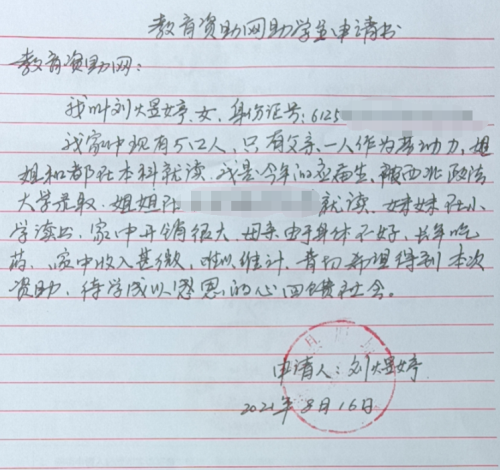 教育资助网助学生申请书
教育资助网：
我叫刘煜婷，女，身份证号：6125
我家中现有5口人，只有父亲一人作为劳动力，姐
姐和都在本科就读。我是今年的应届生，被西北政法
大学录取，姐姐在 就读，妹妹在小
学读书，家中开销很大，母亲由于身体不好，长年吃
药，家中收入甚微，难以维计，肯切希望得到本次
资助，待学成以感恩的心回馈社会。
申请人：刘煜婷
2021年8月16日